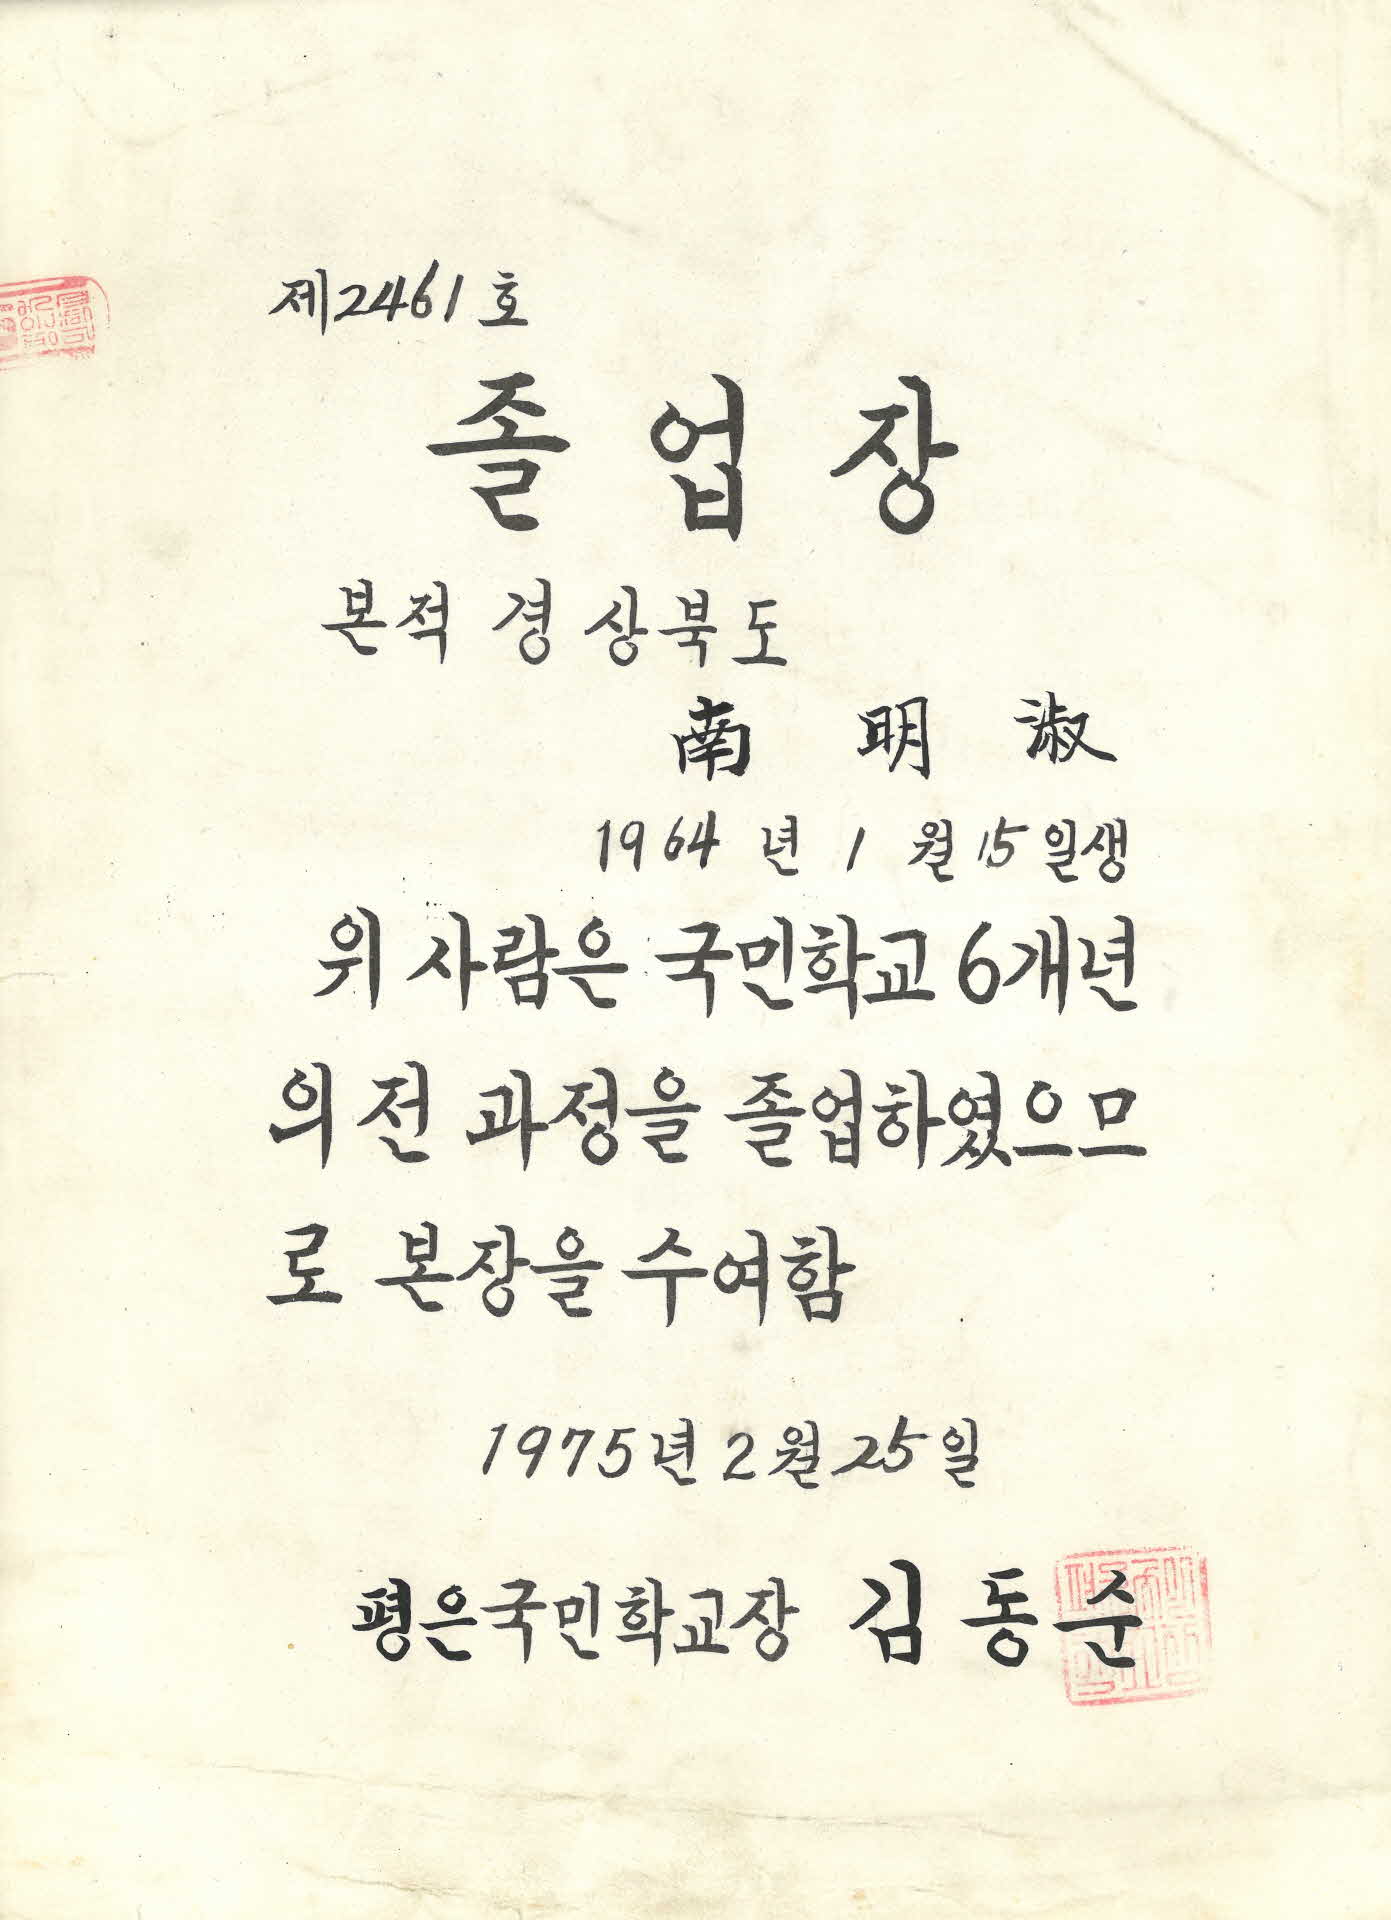 제2461호
졸업장
본적 경상북도
南明淑
1964년 1월 15일생
위 사람은 국민학교 6개년
의 전 과정을 졸업하였으므
로 본장을 수여함
1975년 2월 25일
평은국민학교장 김동준